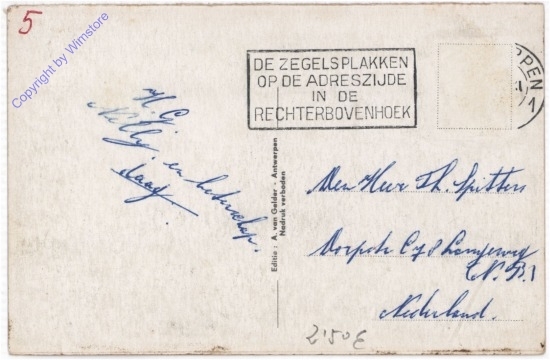 5
Copyright by Wimstore
DE ZEGELS PLAKKEN
OP DE ADRESZIJDE
IN DE
RECHTERBOVENHOEK
PPEN
H. G.
Nelly en
Editie : A. van Gelder - Antwerpen
Nadruk verboden
Den Heer Th. Spitters
Dorpstr. C 78 Langeweg
(N. B.)
Nederland.
2'50€